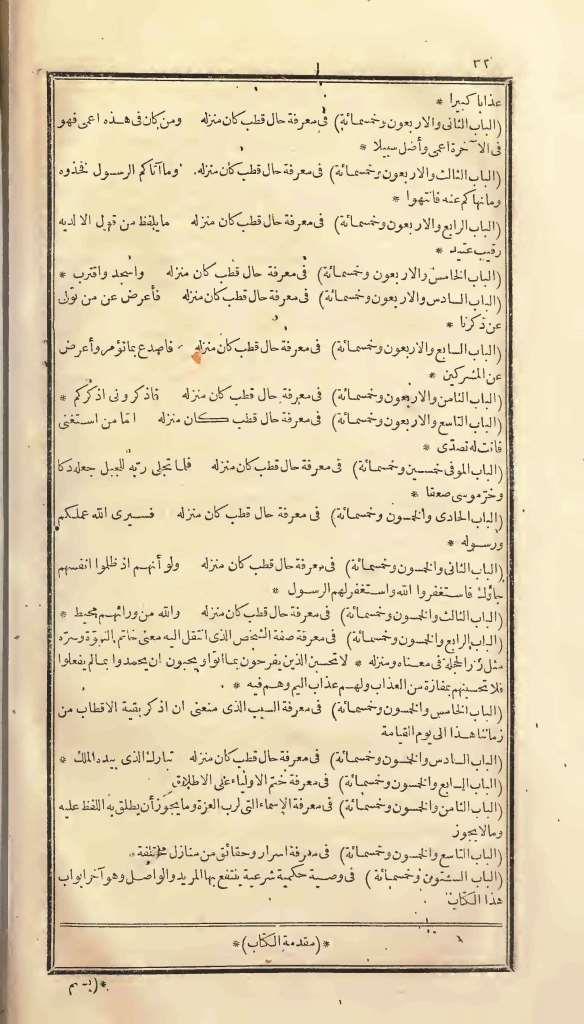 ٣٢
عذابا كبيرا *
(الباب الثانى والاربعون وخمسمائة) فى معرفة حال قطب كان منزله ومن كان فى هذه اعمى فهو
فى الآخرة اعمى وأضل سبيلا *
(الباب الثالث والاربعون وخمسمائة) فى معرفة حال قطب كان منزله وما آتاكم الرسول فخذوه
ومانهاكم عنه فانتهوا *
(الباب الرابع والاربعون وخمسمائة) فى معرفة حال قطب كان منزله ما يلفظ من قول الا لديه
رقيب عتيد *
(الباب الخامس والاربعون وخمسمائة) فى معرفة حال قطب كان منزله واسجد واقترب *
(الباب السادس والاربعون وخمسمائة) فى معرفة حال قطب كان منزله فأعرض عن من تولى
عن ذكرنا *
(الباب السابع والاربعون وخمسمائة) فى معرفة حال قطب كان منزله فاصدع بما تؤمر وأعرض
عن المشركين *
(الباب الثامن والاربعون وخمسمائة) فى معرفة حال قطب كان منزله فاذكرونى اذكركم *
(الباب التاسع والاربعون وخمسمائة) فى معرفة حال قطب كان منزله امّا من استغنى
فانت له تصدّى *
(الباب الموفى خمسين وخمسمائة) فى معرفة حال قطب كان منزله فلما تجلى ربه للجبل جعله دكا
وخرّ موسى صعقا *
(الباب الحادى والخمسون وخمسمائة) فى معرفة حال قطب كان منزله فسيرى الله عملكم
ورسوله *
(الباب الثانى والخمسون وخمسمائة) فى معرفة حال قطب كان منزله ولو أنهم اذ ظلموا انفسهم
جاؤك فاستغفروا الله واستغفر لهم الرسول *
(الباب الثالث والخمسون وخمسمائة) فى معرفة حال قطب كان منزله والله من ورائهم محيط *
(الباب الرابع والخمسون وخمسمائة) فى معرفة صفة الشخص الذى انتقل اليه معنى خاتم النبوّة وسرّه
مثل زر الحجلة فى معناه ومنزله * لا تحسبن الذين يفرحون بما اتوا ويحبون ان يحمدوا بما لم يفعلوا
فلا تحسبنهم بمفازة من العذاب ولهم عذاب اليم وهم فيه *
(الباب الخامس والخمسون وخمسمائة) فى معرفة السبب الذى منعنى ان اذكر بقية الاقطاب من
زماننا هذا الى يوم القيامة
(الباب السادس والخمسون وخمسمائة) فى معرفة حال قطب كان منزله تبارك الذى بيده الملك *
(الباب السابع والخمسون وخمسمائة) فى معرفة ختم الاولياء على الاطلاق
(الباب الثامن والخمسون وخمسمائة) فى معرفة الاسماء التى لرب العزة وما يجوز أن يطلق به اللفظ عليه
وما لا يجوز
(الباب التاسع والخمسون وخمسمائة) فى معرفة اسرار وحقائق من منازل مختلفة
(الباب الستون وخمسمائة) فى وصية حكمية شرعية ينتفع بها المريد والواصل وهو آخر ابواب
هذا الكتاب
*(مقدمة الكتاب)*